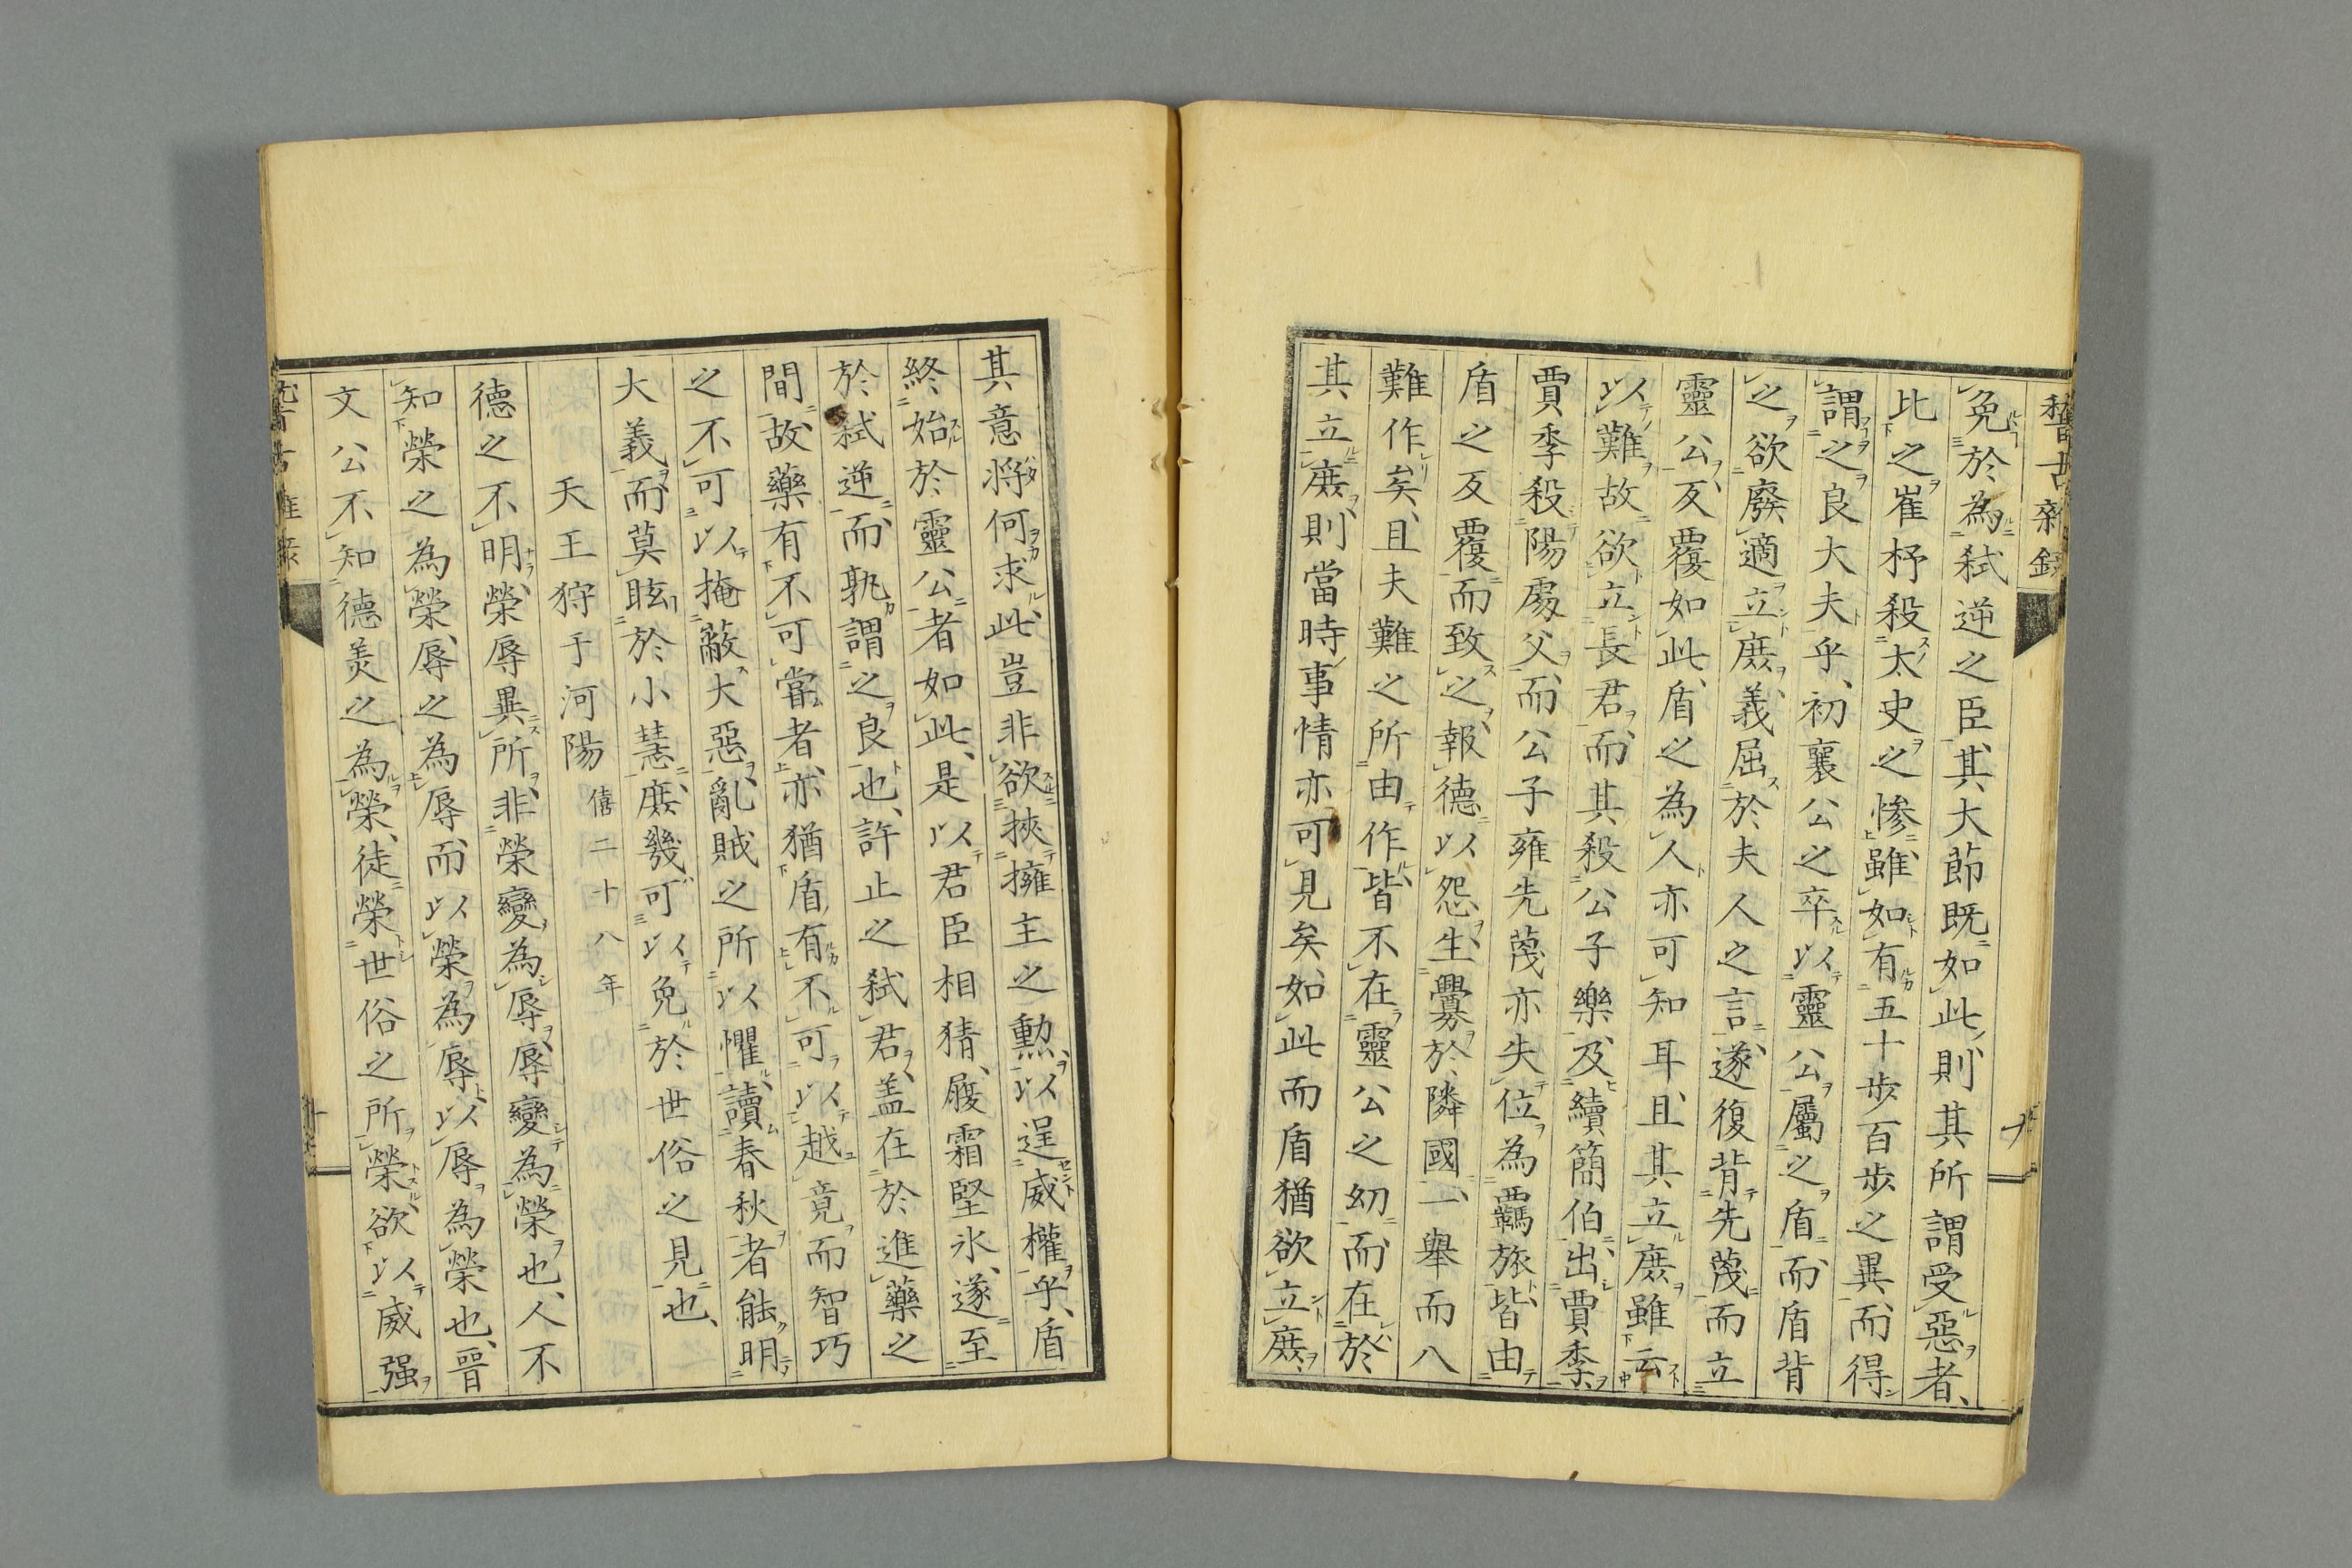 稽古雜録
免於為弑逆之臣、其大節既如此、則其所謂受惡者、
比之崔杼殺太史之惨、雖如有五十歩百歩之異、而得
謂之良大夫乎、初襄公之卒、以靈公屬之盾、而盾背
之欲廢適立庶、義屈於夫人之言、遂復背先蔑而立
靈公、反覆如此、盾之為人亦可知耳、且其立庶、雖云
以難故欲立長君、而其殺公子樂、及續簡伯出、賈季
賈季殺陽處父、而公子雍先蔑亦失位為羈旅、皆由
盾之反覆而致之、報德以怨、生釁於隣國、一舉而八
難作矣、且夫難之所由作、皆不在靈公之幼、而在於
其立庶、則當時事情亦可見矣、如此而盾猶欲立庶、
其意将何求、此豈非欲挾擁主之勲、以逞威權乎、盾
終始於靈公者如此、是以君臣相猜、履霜堅氷、遂至
於弑逆、而孰謂之良也、許止之弑君、盖在於進藥之
間、故藥有不可嘗者、亦猶盾有不可以越竟、而智巧
之不可以掩蔽大惡、亂賊之所以懼、讀春秋者能明
大義、而莫眩於小慧、庶幾可以免於世俗之見也、
天王狩于河陽 僖二十八年
德之不明、榮辱異所、非榮變為辱、辱變為榮也、人不
知榮之為榮、辱之為辱、而以榮為辱、以辱為榮也、晋
文公不知德羙之為榮、徒榮世俗之所榮、欲以威强